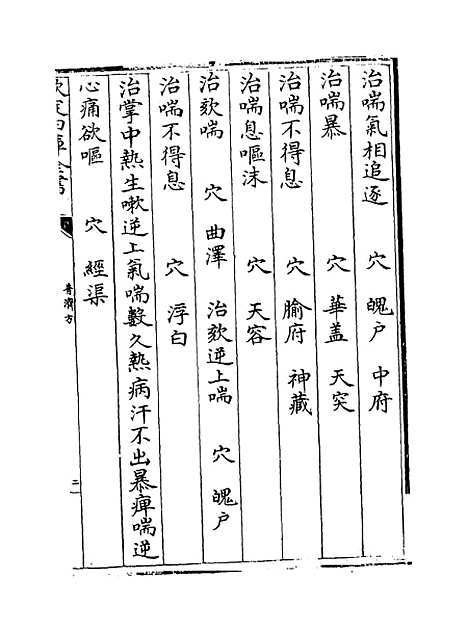 治喘氣相追逐　穴　魄户　中府
治喘暴　穴　華盖　天突
治喘不得息　穴　腧府　神藏
治喘息嘔沫　穴　天容
治欬喘　穴　曲澤　治欬逆上喘　穴　魄户
治喘不得息　穴　浮白
治掌中熱生嗽逆上氣喘數久熱病汗不出暴痺喘逆
心痛欲嘔　穴　經渠
普濟方